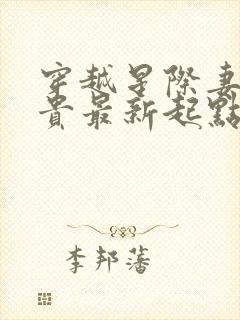 穿越星際妻
貴最新起點
李邦藩